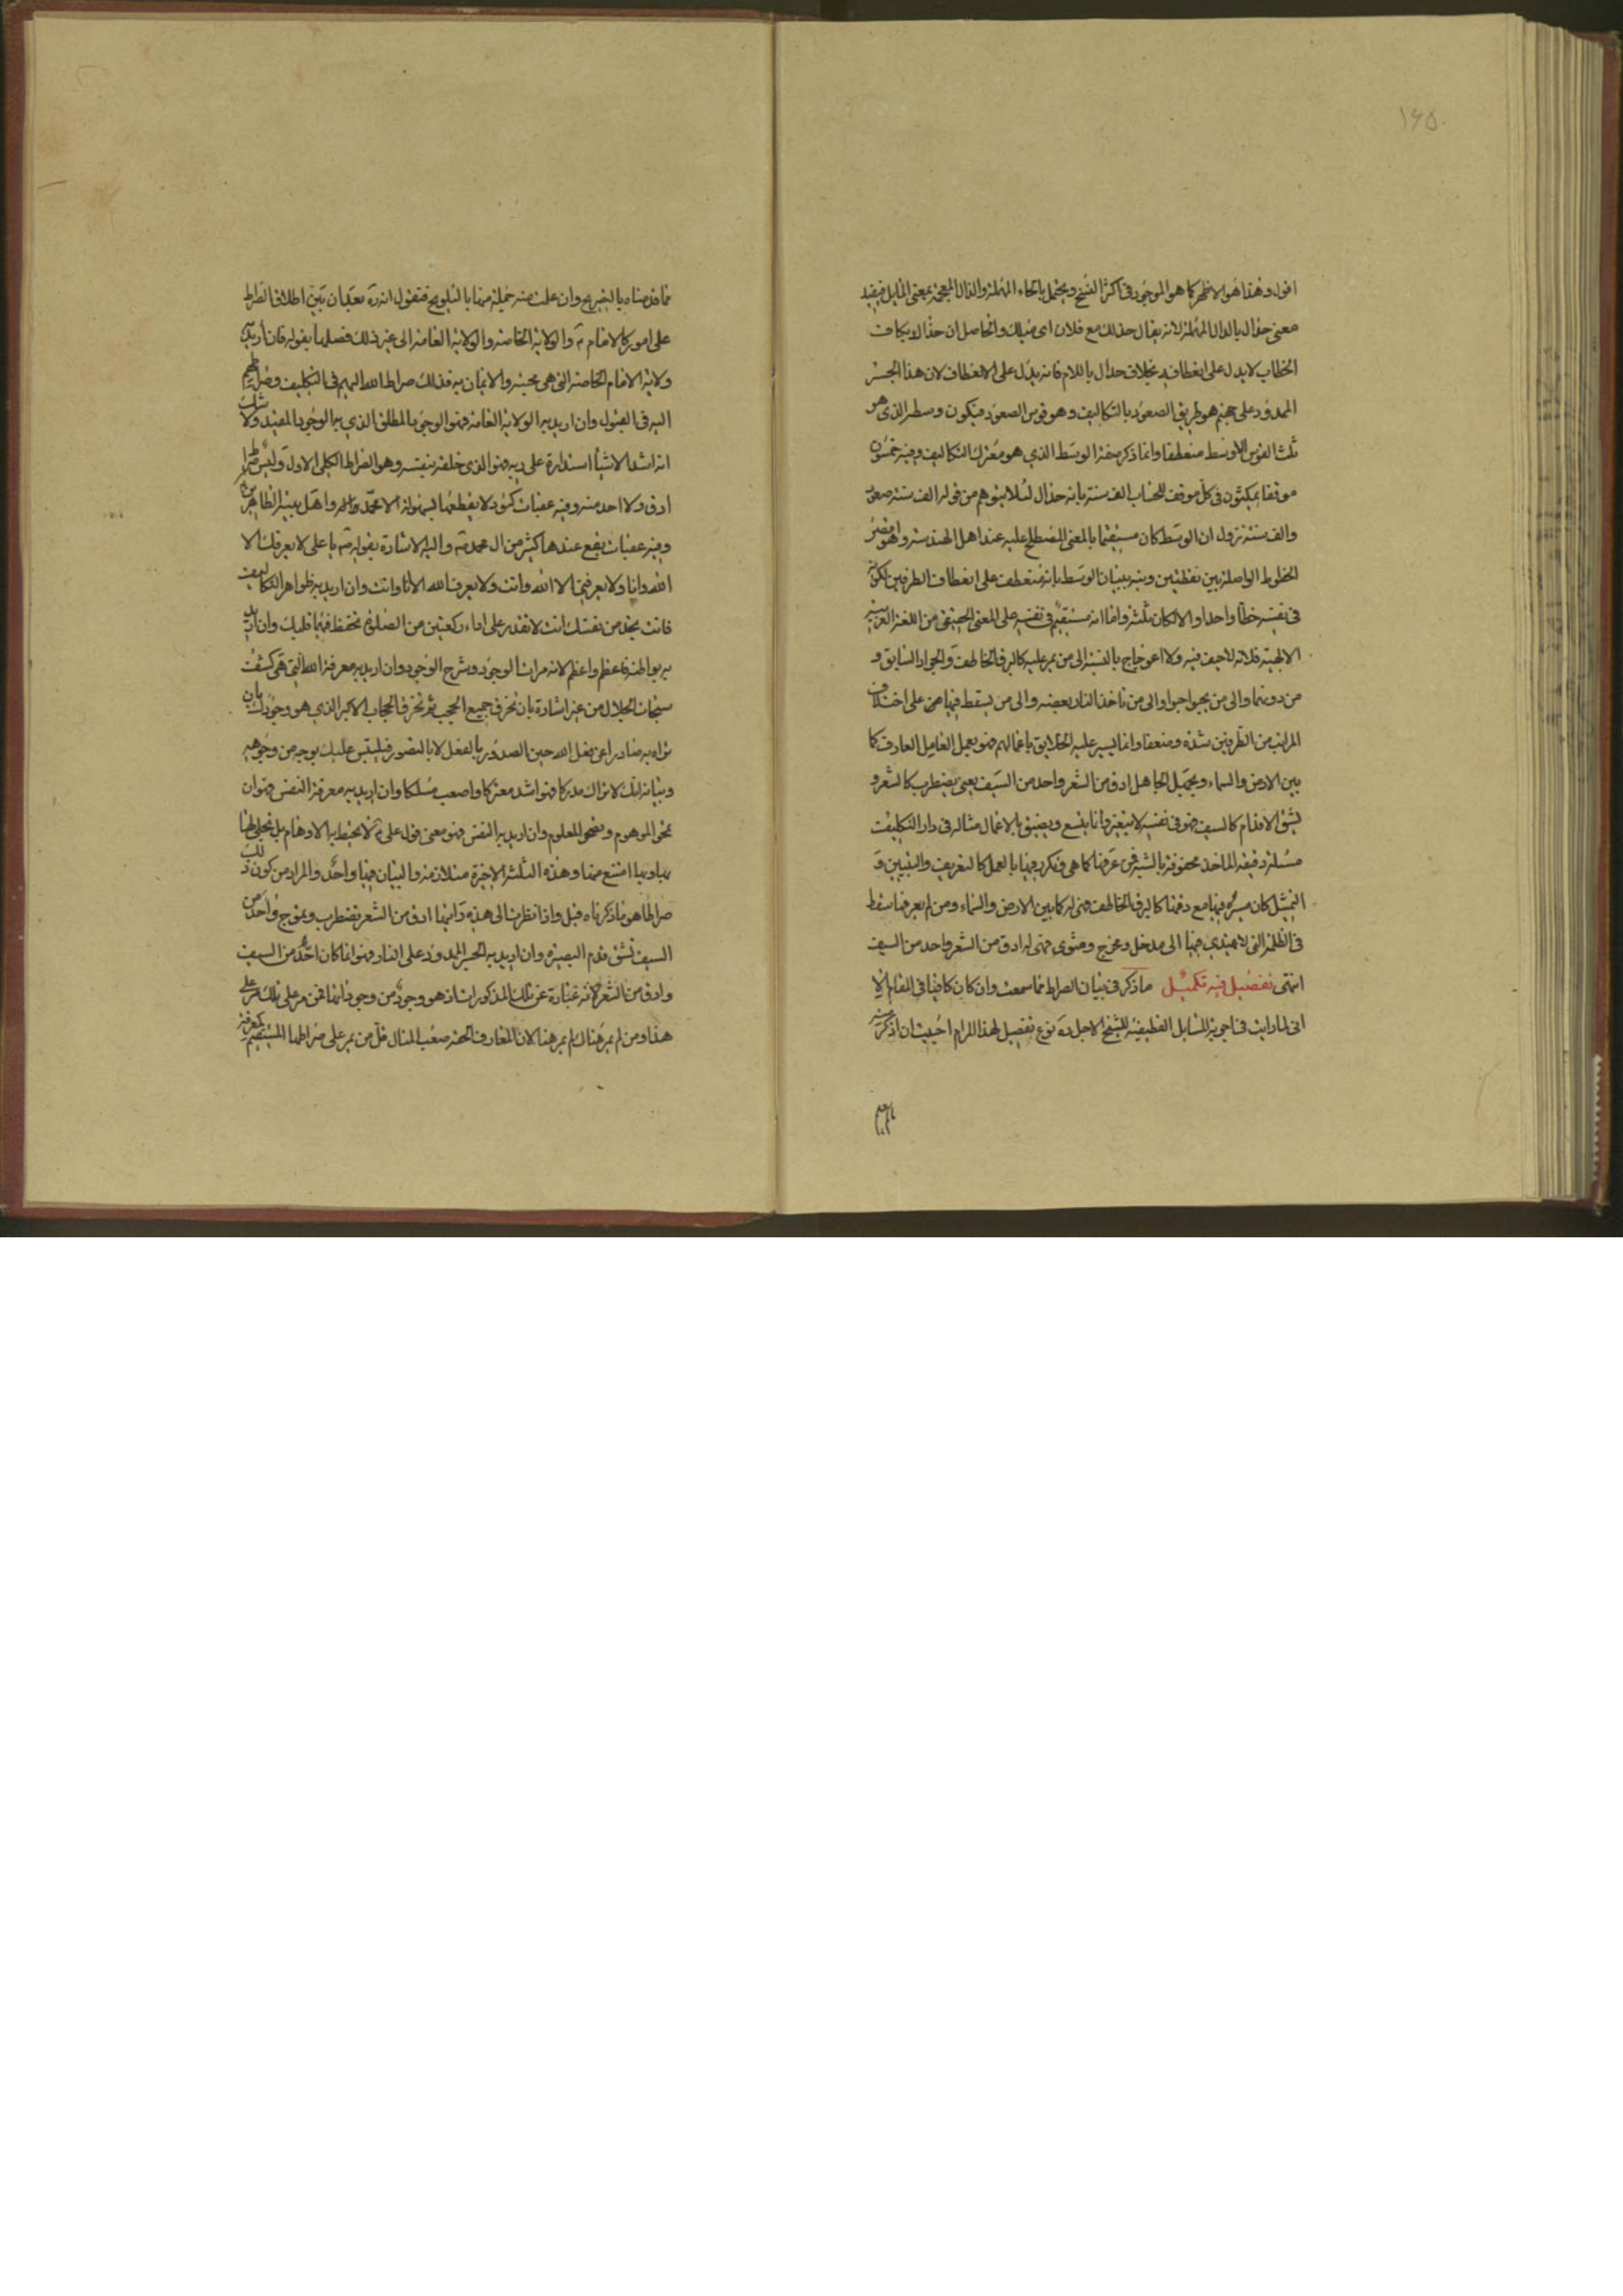 ۱۶۵
اقول وهذا هو الاظهر كما هو الموجود فى اكثر النسخ ويحتمل بالحاء المهملة والذال المعجمة بمعنى المايل فيفيد
معنى حدال بالدال المهملة لانه يقال حدلك مع فلان اى ميلك والحاصل ان حذالا بكاف
الخطاب لا يدل على انعطافه بخلاف حدال باللام فانه يدل على الانعطاف لان هذا الجسر
الممدود على جهنم هو طريق الصعود بالتكاليف وهو قوس الصعود فيكون وسطه الذى هو
ثلث القوس الاوسط منعطفا وانما ذكر صفة الوسط الذي هو معترك التكاليف وفيه خمسون
موقفا يمكثون فى كل موقف للحساب الف سنة بانه حذال لئلا يتوهم من قوله الف سنة صعود
والف سنة نزول ان الوسط كان مستقيما بالمعنى المصطلح عليه عند اهل الهندسة وهو اقصر
الخطوط الواصلة بين نقطتين وبنه ببيان الوسط بانه منعطف على انعطاف الطرفين لكونه
فى نفسه خطا واحدا والا لكان ثلثة واما انه مستقيم فى نفسه على المعنى الحقيقى من اللغة العربية
الالهية فلانه لا حيف فيه ولا اعوجاج بالنسبة الى من يمر عليه كالبرق الخاطف والجواد السابق و
من دونهما والى من يحبوا حبوا والى من تاخذ النار بعضه والى من يسقط فيها على اختلاف
المراتب من الطرفين شدة وضعفا وانما يسير عليه الخلايق باعمالهم فهو بعمل العامل العارف كما
بين الارض والسماء وبجهل الجاهل ادق من الشعر واحد من السيف يعنى يضطرب كالشعر و
يشق الاقدام كالسيف فهو فى نفسه لا يتغير وانما يتسع ويضيق بالاعمال مثاله فى دار التكليف
مسئلة دقيقة الماخذ محفوفة بالشبه فمن عرفها كما هى وفكر فيها بالعمل كالتعريف والتبيين و
التمثيل كان ميره فيها مع دقتها كالبرق الخاطف فهى له كما بين الارض والسماء ومن لم يعرفها سقط
فى الظلمة التى لا يهتدي فيها الى مدخل ومخرج ومثوى فهى له ادق من الشعر واحد من السيف
انتهى تفصيل فيه تكميل ما ذكر فى بيان الصراط مما سمعت وان كان كافيا فى المقام الا
انى لما رايت فى اجوبة المسايل القطيفية للشيخ الاجل ره نوع تفصيل لهذا المرام احببت ان اذكر
مما قدمناه بالتصريح وان علمت منه جملة منها بالتلويح فنقول انه ره بعد ان بين اطلاق الصراط
على امور كالامام ع والولاية الخاصة والولاية العامة الى غير ذلك فصلها بقوله فان اريد به
ولاية الامام الخاصة التى هى محبته والايمان به فذلك صراط الله اليهم فى التكليف وصراطهم
اليه فى القبول وان اريد به الولاية العامة فهو الوجود المطلق الذي به الوجود المقيد ولا شك
انه اشد الاشيأ استدارة على ربه فهو الذى خلقه بنفسه وهو الصراط الكلى الاول وليس صراط
ادق ولا احد منه وفيه عقبات كئود لا يقطعها بسهولة الا محمد واله واهل بيته الطاهرين
وفيه عقبات يقع عندها كثير من ال محمد ص واليه الاشارة بقوله ص يا على لا يعرفك الا
الله وانا ولا يعرفنى الا الله وانت ولا يعرف الله الا انا وانت وان اريد به ظواهر التكاليف
فانت تجد من نفسك انت لا تقدر على اداء ركعتين من الصلوة تحفظ فيهما قلبك وان اريد
به بواطنه فاعظم واعظم لانه مراتب الوجود وشرح الوجود وان اريد به معرفة الله التى هى كشف
سبحات الجلال من غير اشارة بان تخرق جميع الحجب ثم تخرق الحجاب الاكبر الذي هو وجودك بان
تراه به صادرا عن فعل الله حين الصدور بالفعل لا بالتصور فيلتبس عليك بوجه من وجوهه
وبيانه لك لا تراك مدركا فهو اشد معتركا واصعب مسلكا وان اريد به معرفة النفس فهو ان
تمحو الموهوم وتصحى المعلوم وان اريد به النفس فهو معنى قول على ع لا تحيط به الاوهام بل تجلى لها
بها وبها امتنع منها وهذه الثلثة الاخيرة متلازمة والبيان فيها واحد والمراد من كون ذلك
صراطا هو ما ذكرناه قبل واذا نظرت الى هذه رايتها ادق من الشعر تضطرب وتموج واحد من
السيف تشق قدم البصيرة وان اريد به الجسر الممدود على النار فهو انما كان احد من السيف
وادق من الشعر لانه عبارة عن تلك المذكورات اذ هو وجود من وجوداتها فمن مر على تلك مر على
هذا ومن لم يمر هناك لم يمر هنا الا ان المعارف الحقة صعب المنال قل من يمر على صراطها المستقيم